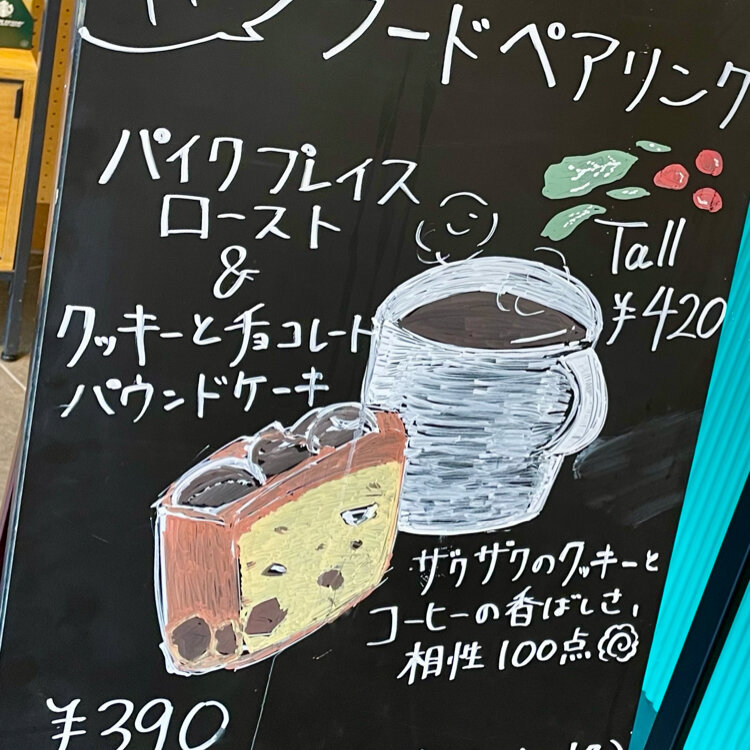 フードペアリング
パイクプレイス
ロースト
&
クッキーとチョコレート
パウンドケーキ
Tall
¥420
ザクザクのクッキーと
コーヒーの香ばしさ、
相性100点
¥390